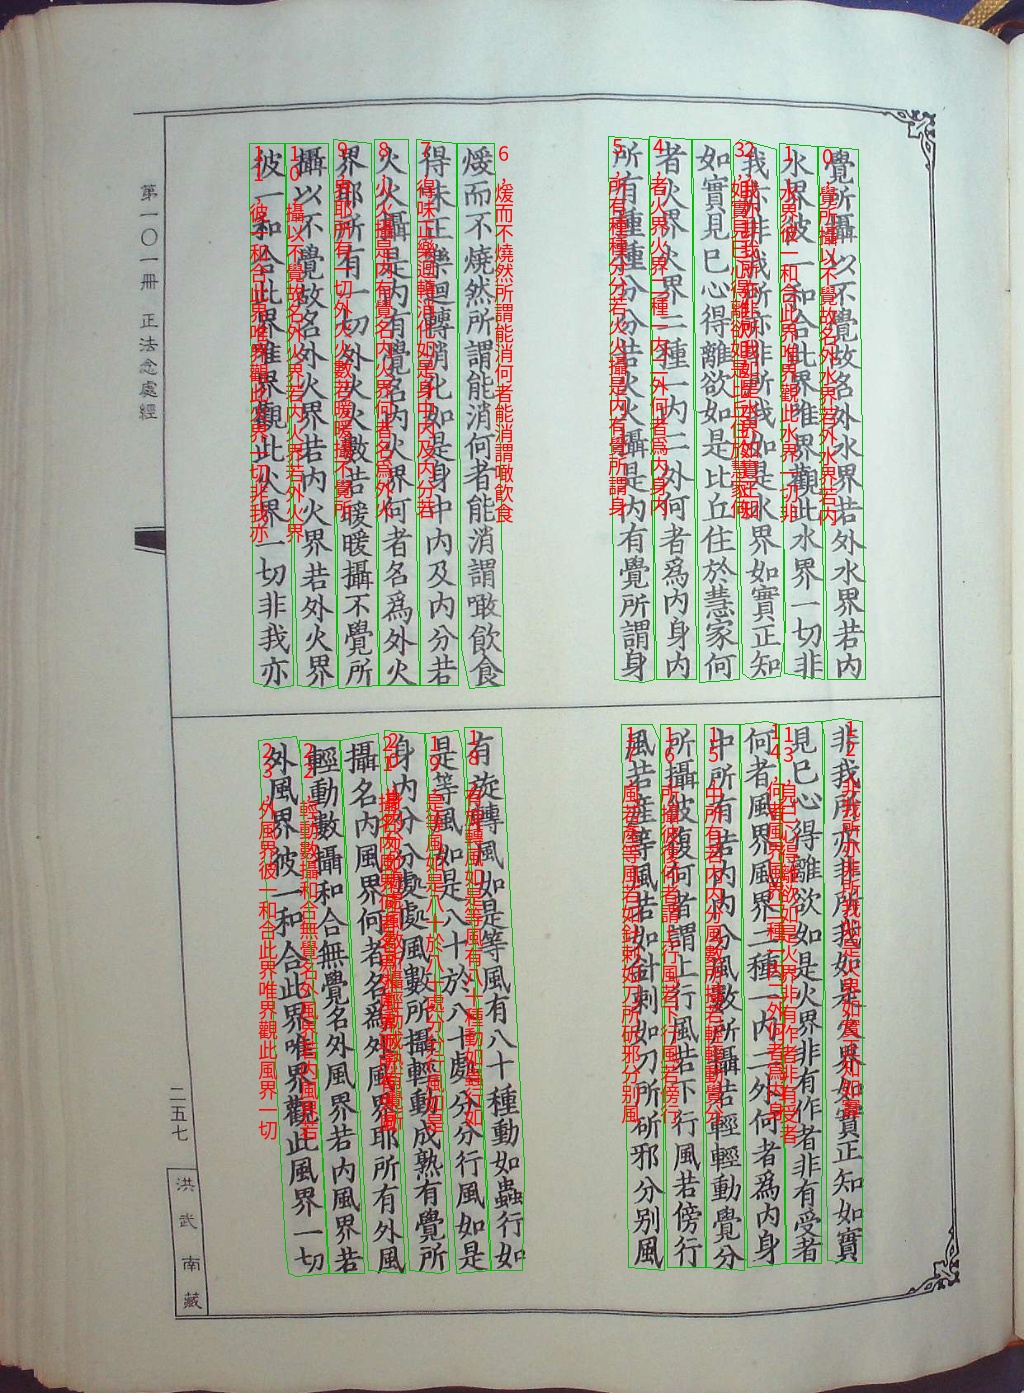 覺所攝以不覺故名外水界若外水界若内
水界彼一和合此界唯界觀此水界一切非
我亦非我所亦非所我如是水界如實正知
如實見已心得離欲如是比丘住於慧家何
者火界火界二種一内二外何者爲内身内
所有種種分分若火火攝是内有覺所謂身
煖而不燒然所謂能消何者能消謂噉飲食
得味正樂迴轉消化如是身中内及内分若
火火攝是内有覺名内火界何者名爲外火
界耶所有一切外火火數若暖暖攝不覺所
攝以不覺故名外火界若内火界若外火界
彼一和合此界唯界觀此火界一切非我亦
非我所亦非所我如是火界如實正知如實
見已心得離欲如是火界非有作者非有受者
何者風界風界二種一内二外何者爲内身
中所有若内内分風數所攝若輕輕動覺分
所攝彼復何者謂上行風若下行風若傍行
風若産等風若如針刺如刀所斫邪分别風
有旋轉風如是等風有八十種動如蟲行如
是等風如是八十於八十處分分行風如是
身内分分處處風數所攝輕動成熟有覺所
攝名内風界何者名爲外風界耶所有外風
輕動數攝和合無覺名外風界若内風界若
外風界彼一和合此界唯界觀此風界一切
第一〇一冊 正法念處經
二五七
洪武南藏